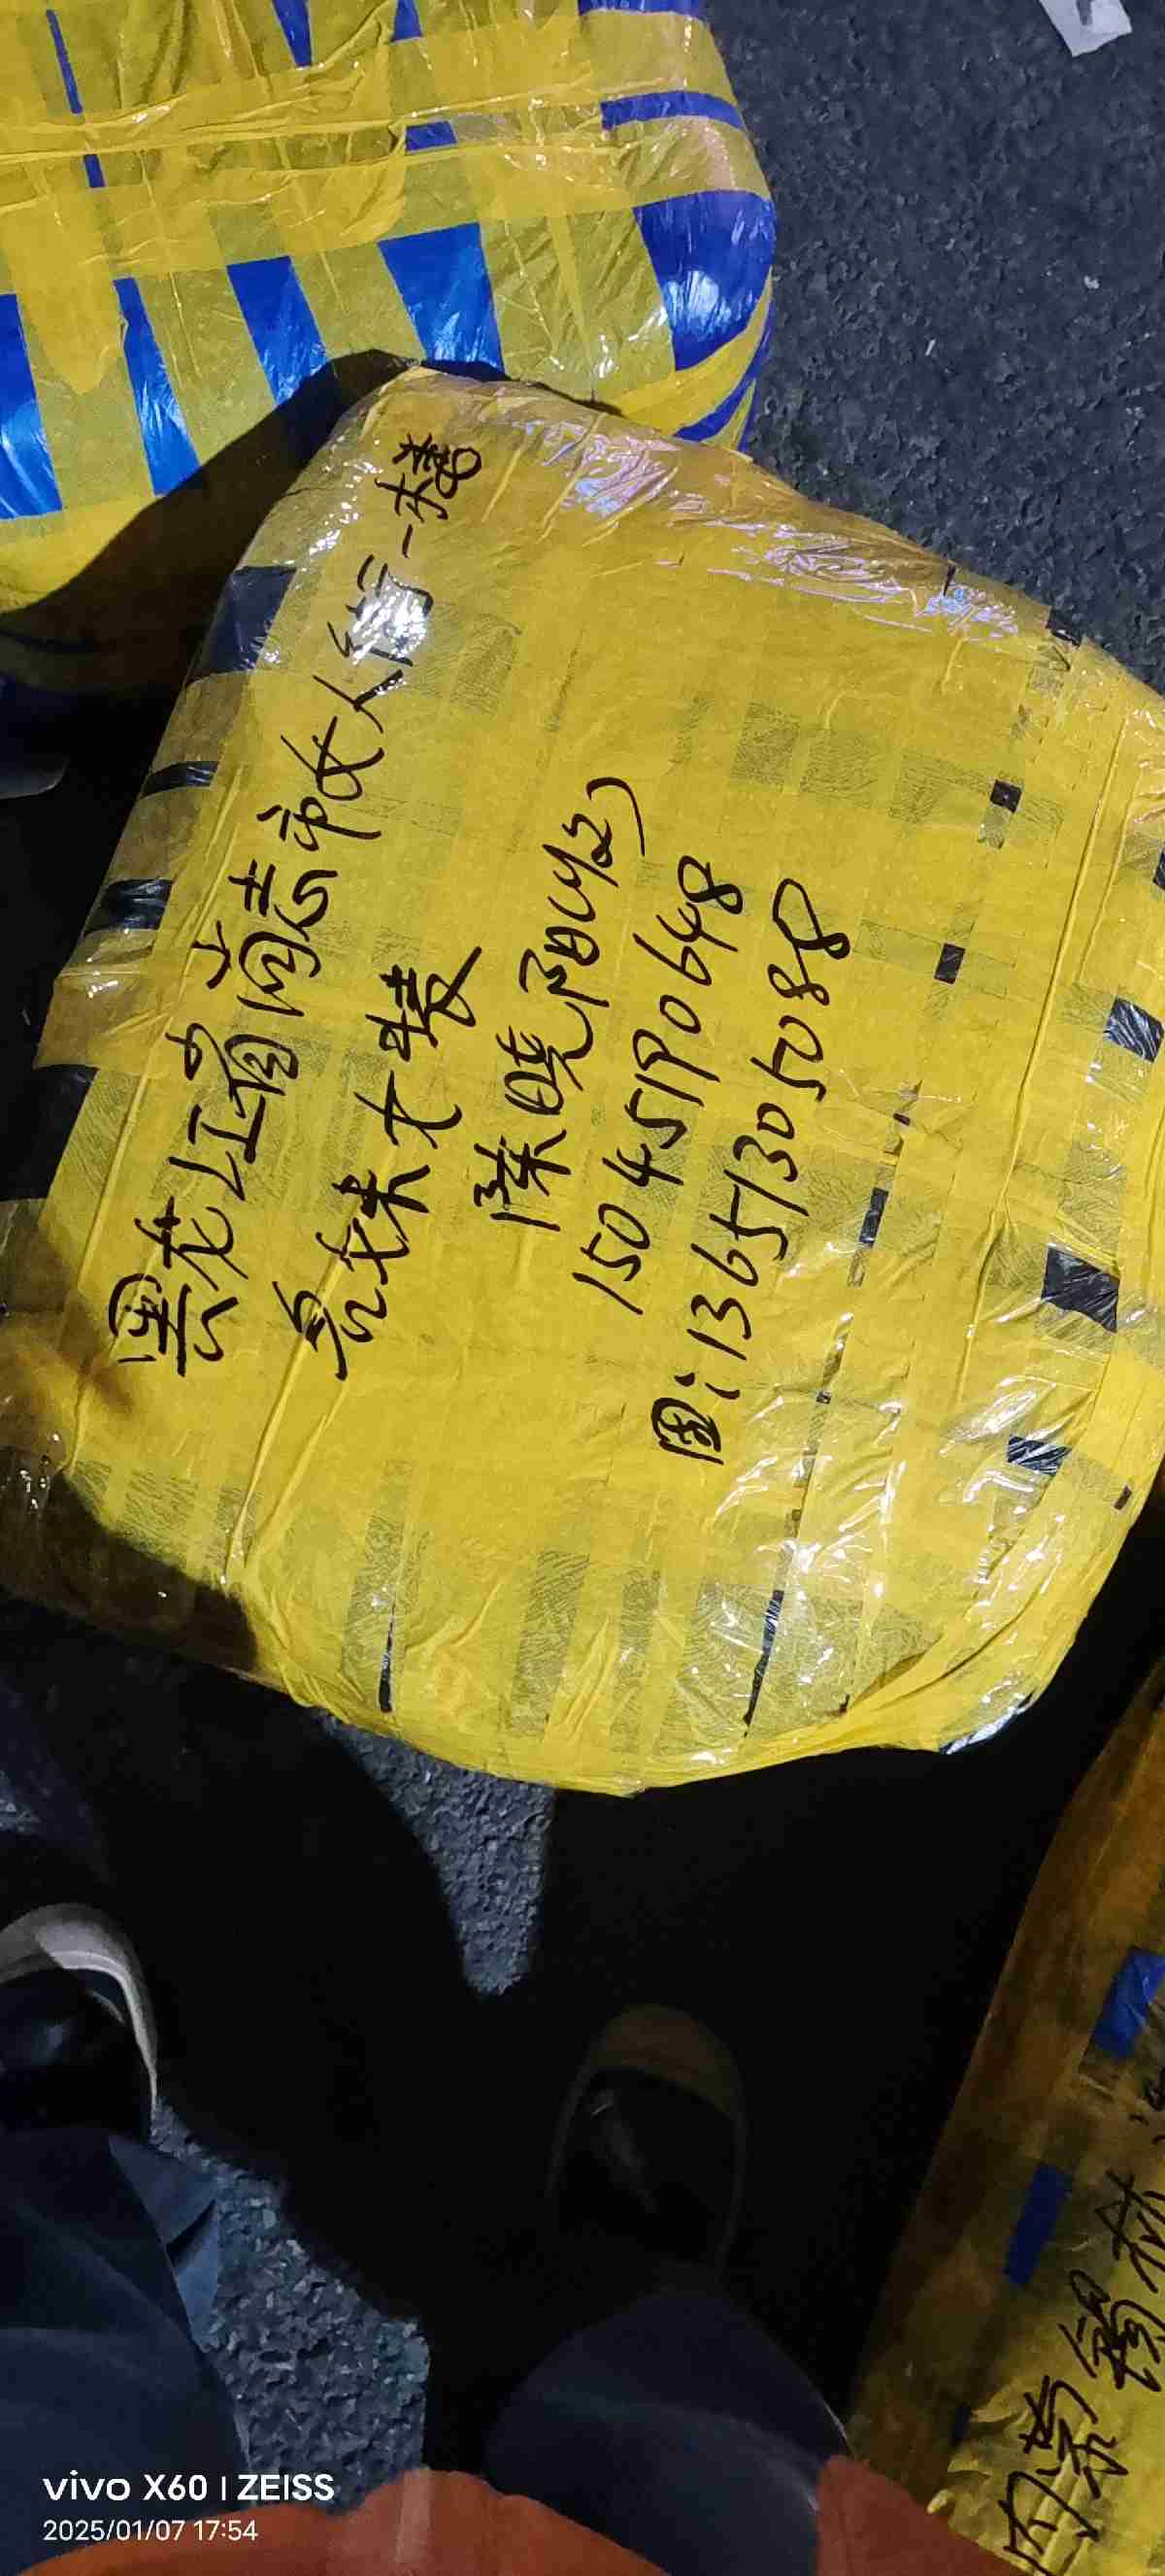 黑龙江省尚志市女人街一楼
系妹大装
陈晓阳(收)
15045190648
田:13651305088
内蒙
vivo X60 | ZEISS
2025/01/07 17:54